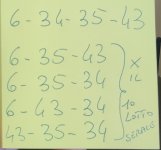 6-34-35-43
6-35-43
6-35-34
6-43-34
43-35-34
X
IL
10
LOTTO
SERALE